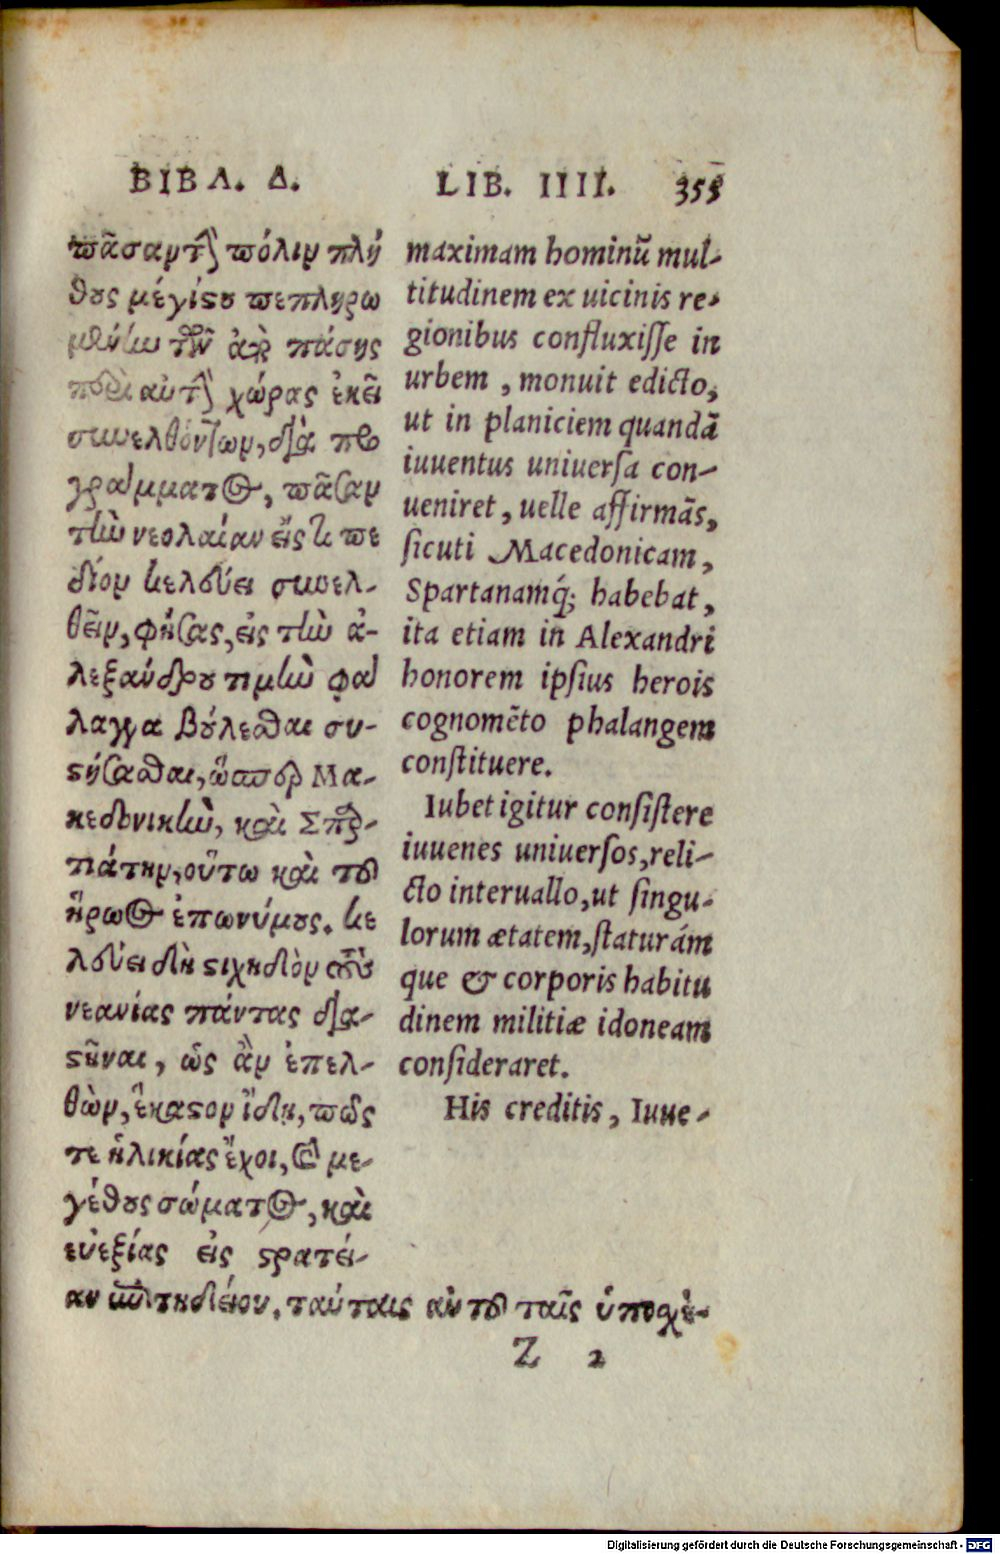 ΒΙΒΛ. Δ.
πᾶσαν τὴν πόλιν πλή
θους μέγιστου πεπληρω
μένην τῶν ἀπὸ πάσης
περὶ αὐτὴν χώρας ἐκεῖ
συνελθόντων, διὰ προ
γράμματος, πᾶσαν
τὴν νεολαίαν εἴς τι πε
δίον κελεύει συνελ-
θεῖν, φήσας, εἰς τὴν ἀ-
λεξάνδρου τιμὴν φά
λαγγα βούλεσθαι συ-
στήσασθαι, ὥσπερ Μα-
κεδονικὴν, καὶ Σπαρ-
τιάτην, οὕτω καὶ τοῦ
ἥρωος ἐπωνύμους. κε
λεύει δὴ στιχηδὸν τοὺς
νεανίας πάντας δια-
στῆναι, ὡς ἂν ἐπελ-
θὼν, ἕκαστον ἴδῃ, πῶς
τε ἡλικίας ἔχοι, καὶ με-
γέθους σώματος, καὶ
εὐεξίας εἰς στρατεί-
αν ἐπιτηδείου. ταύταις αὐτοῦ ταῖς ὑποχέ-
LIB. IIII. 355
maximam hominũ mul-
titudinem ex uicinis re-
gionibus confluxisse in
urbem, monuit edicto,
ut in planiciem quandã
iuuentus uniuersa con-
ueniret, uelle affirmãs,
sicuti Macedonicam,
Spartanamq́; habebat,
ita etiam in Alexandri
honorem ipsius herois
cognomẽto phalangem
constituere.
Iubet igitur consistere
iuuenes uniuersos, reli-
cto interuallo, ut singu-
lorum ætatem, staturám
que & corporis habitu
dinem militiæ idoneam
consideraret.
His creditis, Iuue-
Z 2
Digitalisierung gefördert durch die Deutsche Forschungsgemeinschaft - DFG